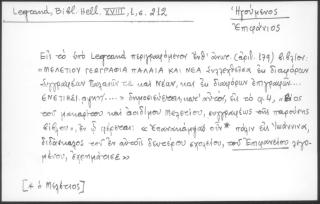 Legrand, Bibl. Hell. XVIII, 1, σ. 212
Ἡγούμενος
Ἐπιφάνιος
Εἰς τὸ ὑπὸ Legrand περιγραφόμενον ἐνθ' ἀνωτ. (ἀριθ. 179) βιβλίον:
«ΜΕΛΕΤΙΟΥ ΓΕΩΓΡΑΦΙΑ ΠΑΛΑΙΑ ΚΑΙ ΝΕΑ συλλεχθεῖσα ἐκ διαφόρων
συγγραφέων Παλαιῶν τε καὶ Νέων, καὶ ἐκ διαφόρων ἐπιγραφῶν...
ΕΝΕΤΙΗΣΙ αψκη'....» δημοσιεύεται, εἰς τὸ φ. 4, «Βίος
τοῦ μακαρίτου καὶ ἀοιδίμου Μελετίου, συγγραφέως τῆς παρούσης
βίβλου», ἐν ᾧ φέρεται: «Ἐπανακάμψας οὖν* πάλιν εἰς Ἰωάννινα,
διδάσκαλος τοῦ ἐν αὐτοῖς δευτέρου σχολείου, τοῦ Ἐπιφανείου λεγο-
μένου, ἐχρημάτισε»
[* ὁ Μελέτιος]